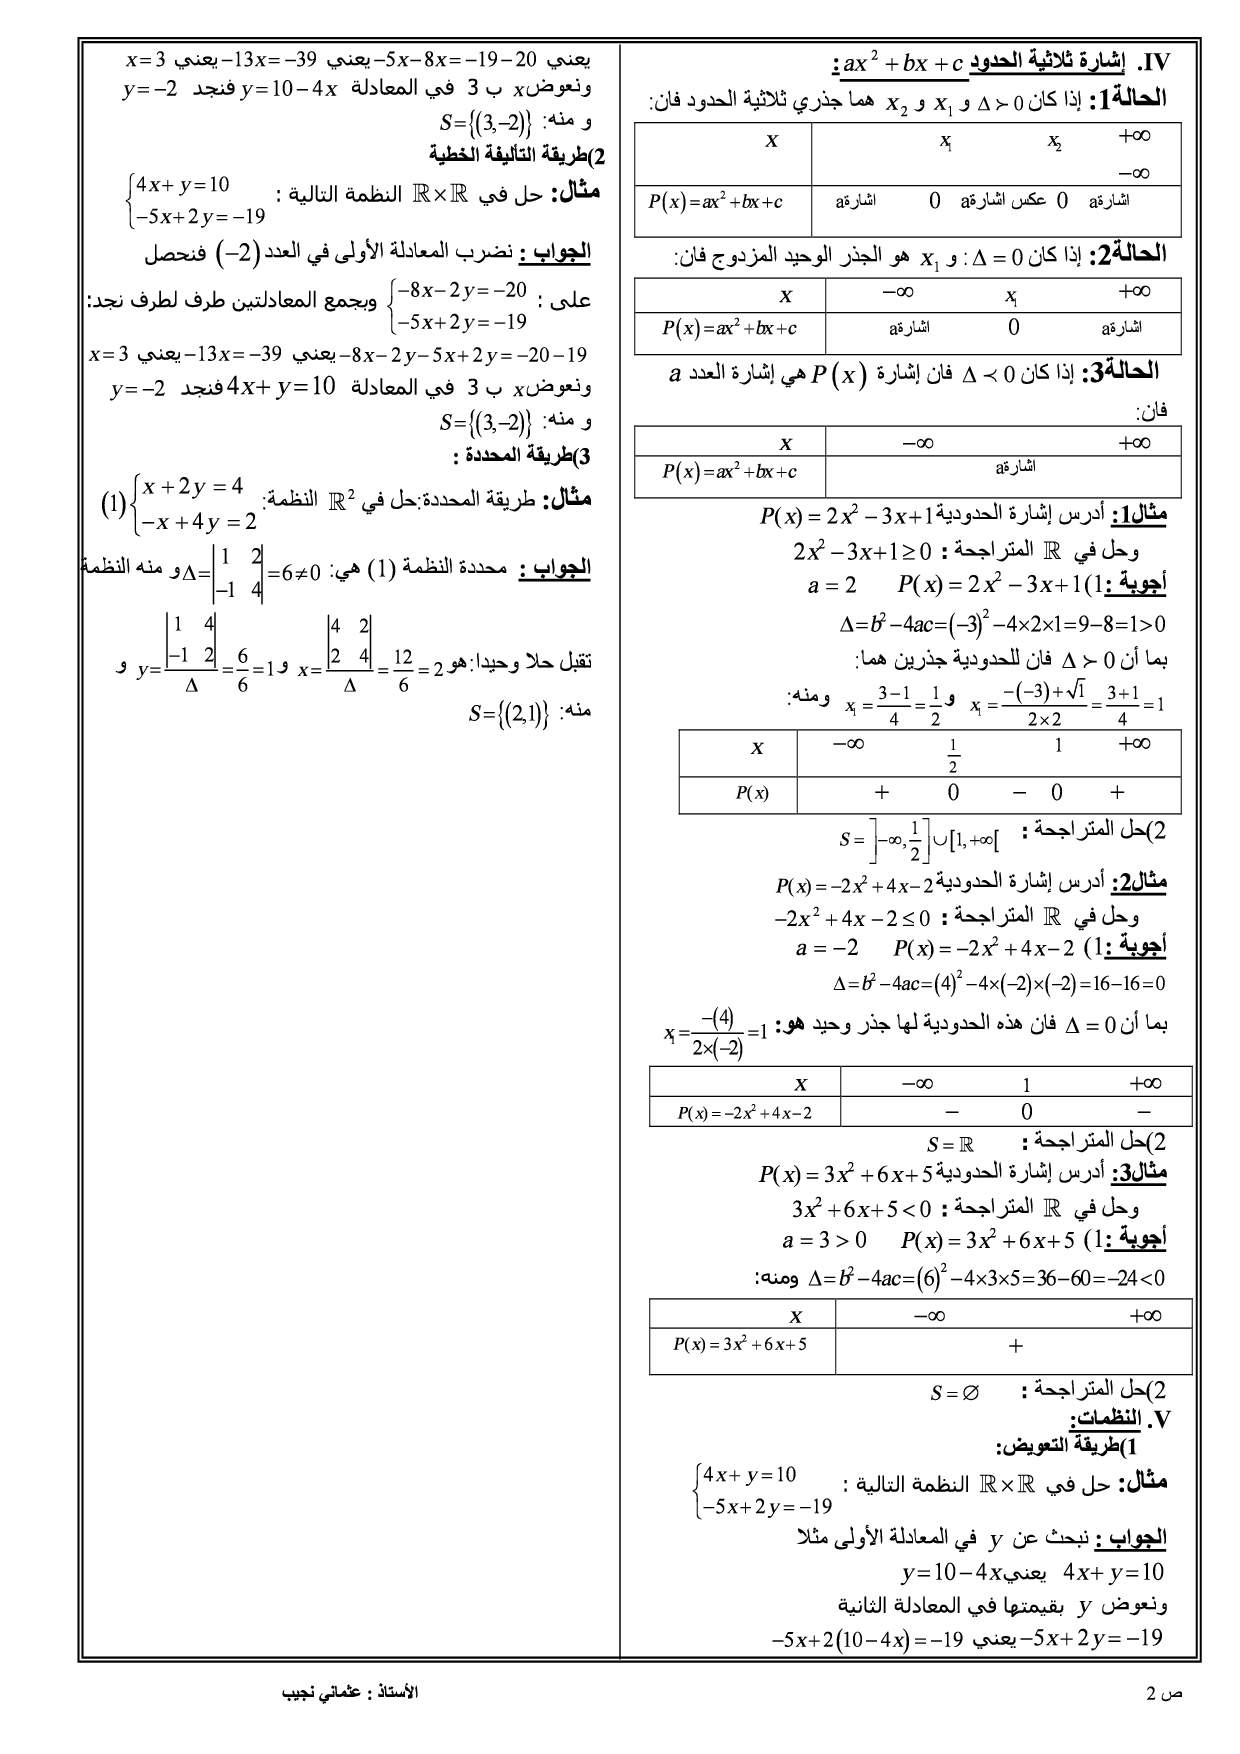 IV. إشارة ثلاثية الحدود ax² + bx + c :
الحالة1: إذا كان Δ ≻ 0 و x₁ و x₂ هما جذري ثلاثية الحدود فان:
x x₁ x₂ +∞
−∞
P(x) = ax² + bx + c اشارةa 0 عكس اشارةa 0 اشارةa
الحالة2: إذا كان Δ = 0 : و x₁ هو الجذر الوحيد المزدوج فان:
x −∞ x₁ +∞
P(x) = ax² + bx + c اشارةa 0 اشارةa
الحالة3: إذا كان Δ ≺ 0 فان إشارة P(x) هي إشارة العدد a
فان:
x −∞ +∞
P(x) = ax² + bx + c اشارةa
مثال1: أدرس إشارة الحدودية P(x) = 2x² − 3x + 1
وحل في ℝ المتراجحة : 2x² − 3x + 1 ≥ 0
أجوبة :1) P(x) = 2x² − 3x + 1 a = 2
Δ = b² − 4ac = (−3)² − 4×2×1 = 9 − 8 = 1 > 0
بما أن Δ ≻ 0 فان للحدودية جذرين هما:
x₁ = (−(−3)+√1)/(2×2) = (3+1)/4 = 1 و x₁ = (3−1)/4 = 1/2 ومنه:
x −∞ 1/2 1 +∞
P(x) + 0 − 0 +
2)حل المتراجحة : S = ]−∞, 1/2] ∪ [1, +∞[
مثال2: أدرس إشارة الحدودية P(x) = −2x² + 4x − 2
وحل في ℝ المتراجحة : −2x² + 4x − 2 ≤ 0
أجوبة :1) P(x) = −2x² + 4x − 2 a = −2
Δ = b² − 4ac = (4)² − 4×(−2)×(−2) = 16 − 16 = 0
بما أن Δ = 0 فان هذه الحدودية لها جذر وحيد هو: x₁ = −(4)/(2×(−2)) = 1
x −∞ 1 +∞
P(x) = −2x² + 4x − 2 − 0 −
2)حل المتراجحة : S = ℝ
مثال3: أدرس إشارة الحدودية P(x) = 3x² + 6x + 5
وحل في ℝ المتراجحة : 3x² + 6x + 5 < 0
أجوبة :1) P(x) = 3x² + 6x + 5 a = 3 > 0
Δ = b² − 4ac = (6)² − 4×3×5 = 36 − 60 = −24 < 0 ومنه:
x −∞ +∞
P(x) = 3x² + 6x + 5 +
2)حل المتراجحة : S = ∅
V. النظمات:
1)طريقة التعويض:
مثال: حل في ℝ×ℝ النظمة التالية : {4x + y = 10
−5x + 2y = −19
الجواب : نبحث عن y في المعادلة الأولى مثلا
4x + y = 10 يعني y = 10 − 4x
ونعوض y بقيمتها في المعادلة الثانية
−5x + 2y = −19 يعني −5x + 2(10 − 4x) = −19
يعني −5x − 8x = −19 − 20 يعني −13x = −39 يعني x = 3
ونعوض x ب 3 في المعادلة y = 10 − 4x فنجد y = −2
و منه: S = {(3, −2)}
2)طريقة التأليفة الخطية
مثال: حل في ℝ×ℝ النظمة التالية : {4x + y = 10
−5x + 2y = −19
الجواب : نضرب المعادلة الأولى في العدد (−2) فنحصل
على : {−8x − 2y = −20
−5x + 2y = −19 وبجمع المعادلتين طرف لطرف نجد:
−8x − 2y − 5x + 2y = −20 − 19 يعني −13x = −39 يعني x = 3
ونعوض x ب 3 في المعادلة 4x + y = 10 فنجد y = −2
و منه: S = {(3, −2)}
3)طريقة المحددة :
مثال: طريقة المحددة:حل في ℝ² النظمة: (1) {x + 2y = 4
−x + 4y = 2
الجواب : محددة النظمة (1) هي: Δ = |1 2; −1 4| = 6 ≠ 0 و منه النظمة
تقبل حلا وحيدا:هو x = |4 2; 2 4|/Δ = 12/6 = 2 و y = |1 4; −1 2|/Δ = 6/6 = 1 و
منه: S = {(2,1)}
ص 2 الأستاذ : عثماني نجيب